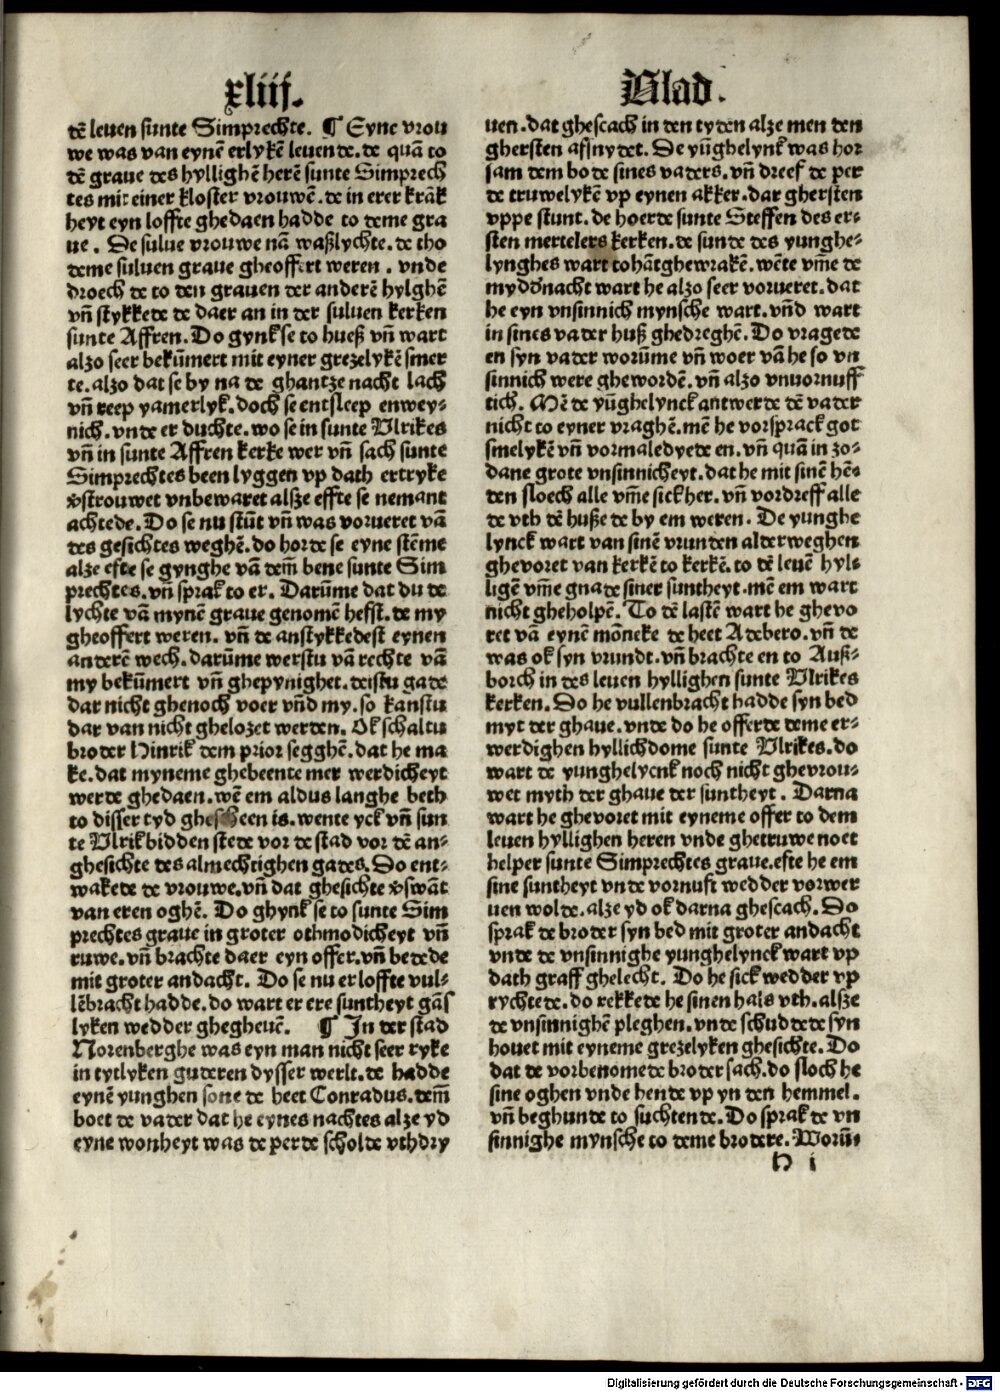 xliij.
tē leuen sunte Simprechte. ¶ Eyne vrou
we was van eynē erlykē leuende. de quā to
dē graue des hyllighē herē sunte Simprech
tes mit einer kloster vrouwē. de in erer krāk
heyt eyn loffte ghedaen hadde to deme gra
ue. De sulue vrouwe nā waßlychte. de tho
deme suluen graue gheoffert weren. vnde
droech de to den grauen der anderē hylghē
vn̄ stykkede de daer an in der suluen kerken
sunte Affren. Do gynk se to hueß vn̄ wart
alzo seer bekūmert mit eyner grezelykē smer
te. alzo dat se by na de ghantze nacht lach
vn̄ reep yamerlyk. doch se entsleep enwey⸗
nich. vnde er duchte. wo se in sunte Vlrikes
vn̄ in sunte Affren kerke wer vn̄ sach sunte
Simprechtes been lyggen vp dath ertryke
vstrouwet vnbewaret alsze effte se nemant
achtede. Do se nu stūt vn̄ was vorueret vā
des gesichtes weghē. do horde se eyne stēme
alze efte se gynghe vā dem̄ bene sunte Sim
prechtes. vn̄ sprak to er. Darūme dat du de
lychte vā mynē graue genomē hefst. de my
gheoffert weren. vn̄ de anstykkedest eynen
anderē wech. darūme werstu vā rechte vā
my bekūmert vn̄ ghepynighet. deistu gade
dar nicht ghenoch voer vn̄d my. so kanstu
dar van nicht ghelozet werden. Ok schaltu
broder Hinrik dem prior segghē. dat he ma
ke. dat myneme ghebeente mer werdicheyt
werde ghedaen. wē em aldus langhe beth
to disser tyd ghescheen is. wente yck vn̄ sun
te Vlrik bidden stede vor de stad vor dē an⸗
ghesichte des almechtighen gades. Do ent⸗
wakede de vrouwe. vn̄ dat ghesichte vswāt
van eren oghē. Do ghynk se to sunte Sim
prechtes graue in groter othmodicheyt vn̄
ruwe. vn̄ brachte daer eyn offer. vn̄ bede de
mit groter andacht. Do se nu er loffte vul⸗
lēbracht hadde. do wart er ere suntheyt gās
lyken wedder ghegheuē. ¶ In der stad
Norenberghe was eyn man nicht seer ryke
in tytlyken guderen dysser werlt. de hadde
eynē yunghen sone de heet Conradus. dem̄
boet de vader dat he eynes nachtes alze yd
eyne wonheyt was de perde scholde vthdry
Blad.
uen. dat ghescach in den tyden alze men den
ghersten affnydet. De yūghelynk was hor
sam dem bode sines vaders. vn̄ dreef de per
de truwelykē vp eynen akker. dar ghersten
vppe stunt. de hoerde sunte Steffen des er⸗
sten mertelers kerken. de sunde des yunghe⸗
lynghes wart to hātghewrakē. wēte vm̄e de
myddōnacht wart he alzo seer vorueret. dat
he eyn vnsinnich mynsche wart. vn̄d wart
in sines vader huß ghedreghē. Do vragede
en syn vader worūme vn̄ woer vā he so vn
sinnich were ghewordē. vn̄ alzo vnuornuff
tich. Mē de yūghelynck antwerde dē vader
nicht to eyner vraghē. mē he vorsprack got
smelykē vn̄ vormaledyede en. vn̄ quā in zo⸗
dane grote vnsinnicheyt. dat he mit sinē hē⸗
den sloech alle vm̄e sick her. vn̄ vordreff alle
de vth dē huße de by em weren. De yunghe
lynck wart van sinē vrunden alderweghen
ghevoret van kerkē to kerkē. to dē leuē hyl⸗
ligē vm̄e gnade siner suntheyt. mē em wart
nicht gheholpē. To dē lastē wart he ghevo
ret vā eynē mōneke de heet Adebero. vn̄ de
was ok syn vrundt. vn̄ brachte en to Auß⸗
borch in des leuen hyllighen sunte Vlrikes
kerken. Do he vullenbracht hadde syn bed
myt der ghaue. vnde do he offerde deme er⸗
werdighen hyllichdome sunte Vlrikes. do
wart de yunghelycnk noch nicht ghevrou⸗
wet myth der ghaue der suntheyt. Darna
wart he ghevoret mit eyneme offer to dem
leuen hyllighen heren vnde ghetruwe noet
helper sunte Simprechtes graue. efte he em
sine suntheyt vnde vornuft wedder vorwer
uen wolde. alze yd ok darna ghescach. Do
sprak de broder syn bed mit groter andacht
vnde de vnsinnighe yunghelynck wart vp
dath graff ghelecht. Do he sick wedder vp
rychtede. do rekkede he sinen hals vth. alsze
de vnsinnighē pleghen. vnde schuddede syn
houet mit eyneme grezelyken ghesichte. Do
dat de vorbenomede broder sach. do sloch he
sine oghen vnde hende vp yn den hemmel.
vn̄ beghunde to suchtende. Do sprak de vn
sinnighe mynsche to deme brodere. Worūⸯ
h i
Digitalisierung gefördert durch die Deutsche Forschungsgemeinschaft - DFG